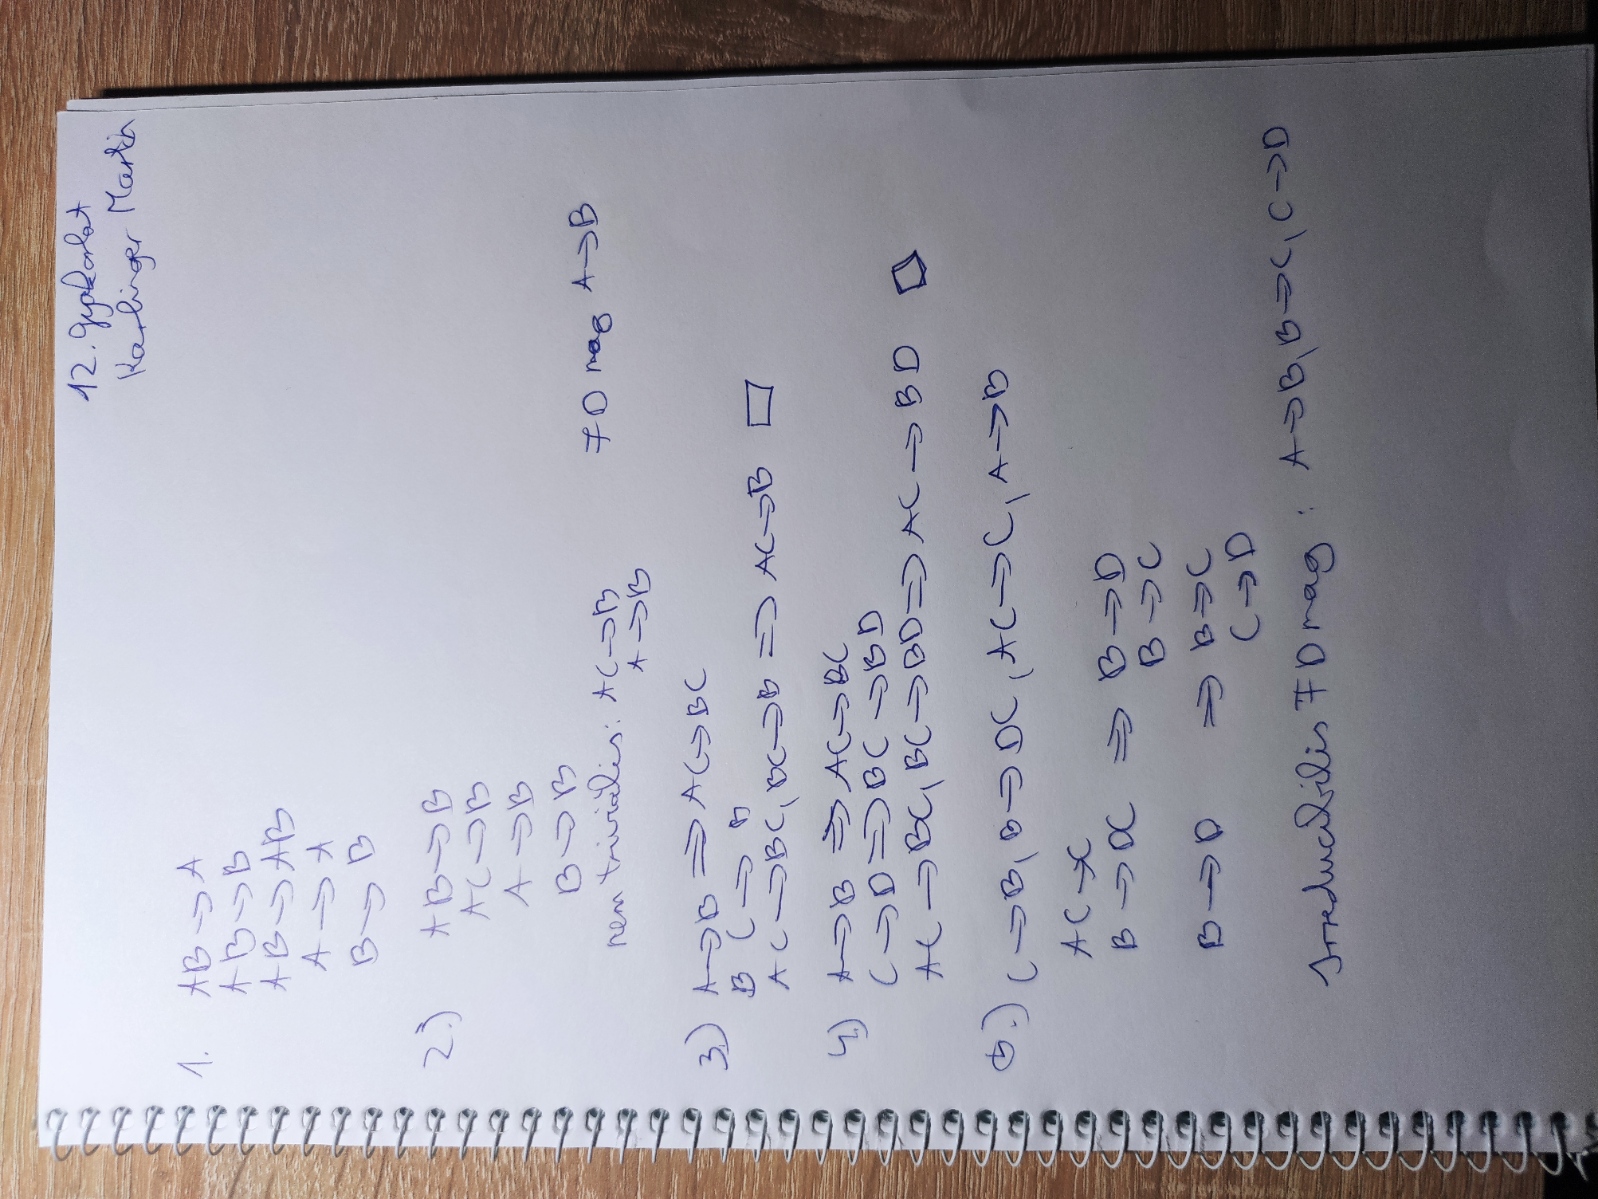 12. gyakorlat
Karlinger Martin
1. AB → A
AB → B
AB → AB
A → A
B → B
2.) AB → B
AC → B
A → B
B → B
nem triviális: AC → B FD mag A → B
A → B
3.) A → B ⇒ AC → BC
B C → B
AC → BC, BC → B ⇒ AC → B □
4.) A → B ⇒ AC → BC
C → D ⇒ BC → BD
AC → BC, BC → BD ⇒ AC → BD □
5.) C → B, B → DC, AC → C, A → B
AC → C
B → DC ⇒ B → D
B → C
B → D ⇒ B → C
C → D
Irreducibilis FD mag: A → B, B → C, C → D